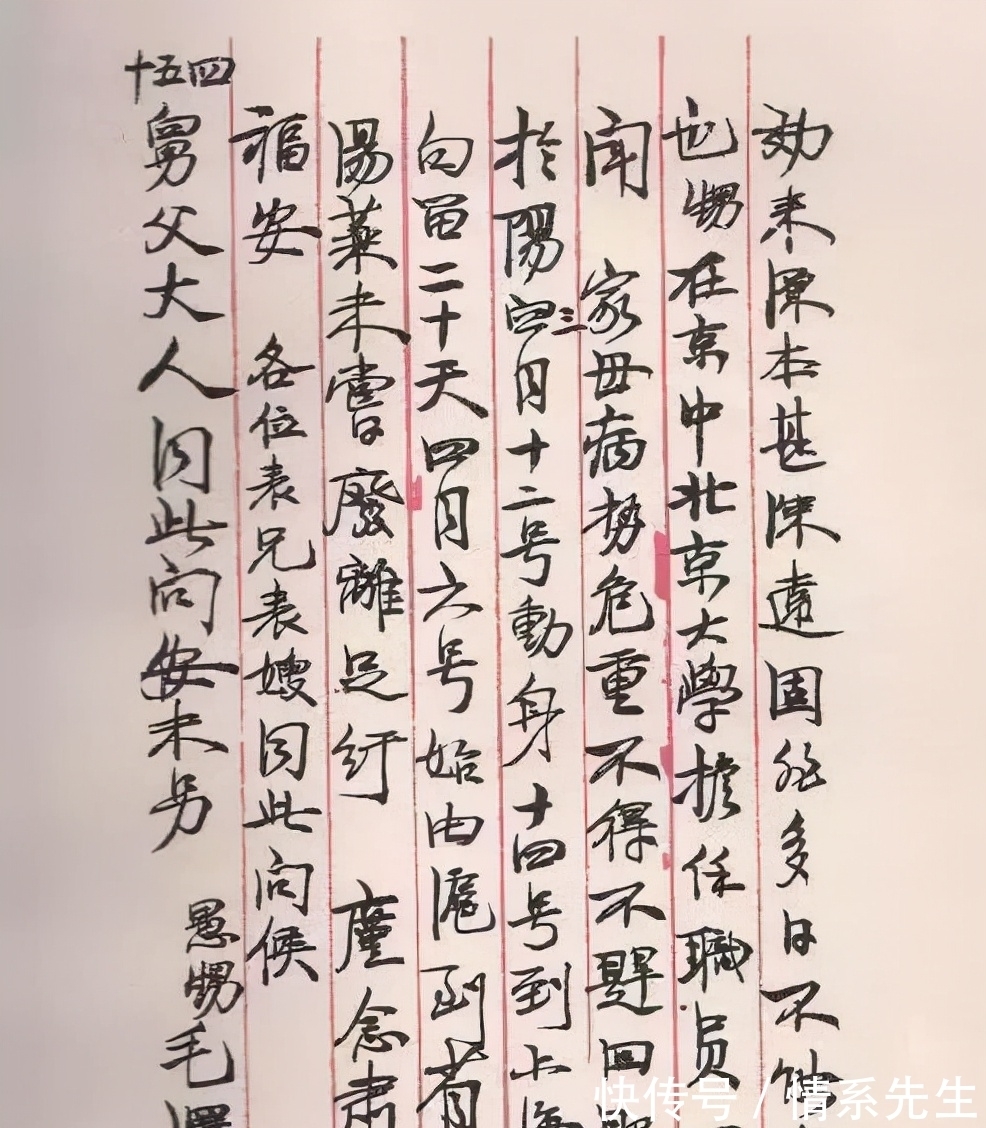 効来源本甚深遠固非多日不能
也甥在京中北京大學擔任職员
闻 家母病势危重不得不趕回
於陽四三月十二号動身十四号到上海
勾留二十天四月六号始由滬到省
湯藥未嘗廢離足纾 廑念肃
福安 各位表兄表嫂同此问候
四五十舅父大人同此问安未另
愚甥毛澤
快传号 / 情系先生